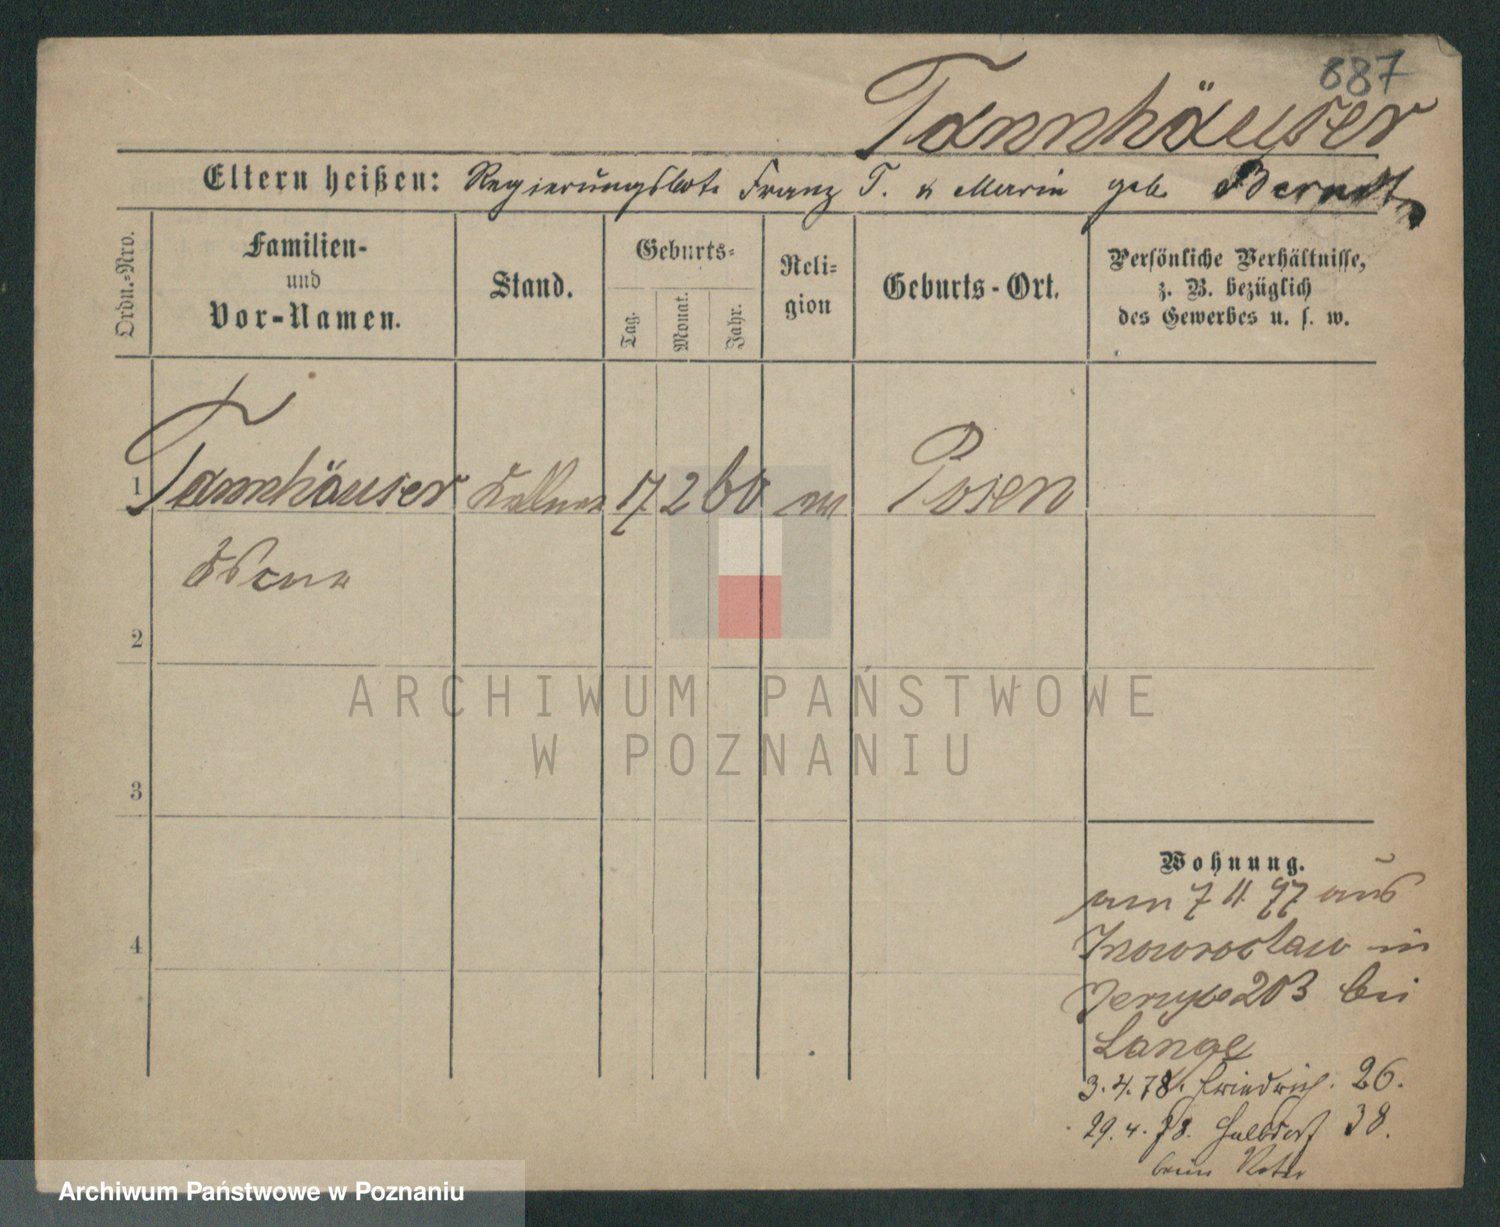 887
Tannhäuser
Eltern heißen: Regierungsbote Franz T. u Marie geb Berndt
Ordn.-Nro.
Familien-
und
Vor-Namen.
Stand.
Geburts-
Tag.
Monat.
Jahr.
Reli-
gion
Geburts-Ort.
Persönliche Verhältnisse,
z. B. bezüglich
des Gewerbes u. s. w.
1 Tannhäuser Kellner 17 2 60 Posen
2
3
4
ARCHIWUM PAŃSTWOWE
W POZNANIU
Wohnung.
am 7 11 77 aus
Inowroclaw in
Jersyce 203 bei
Lange
3.4.78. Friedrich. 26.
29.4.78. Halbdorf 38.
beim Vater
Archiwum Państwowe w Poznaniu